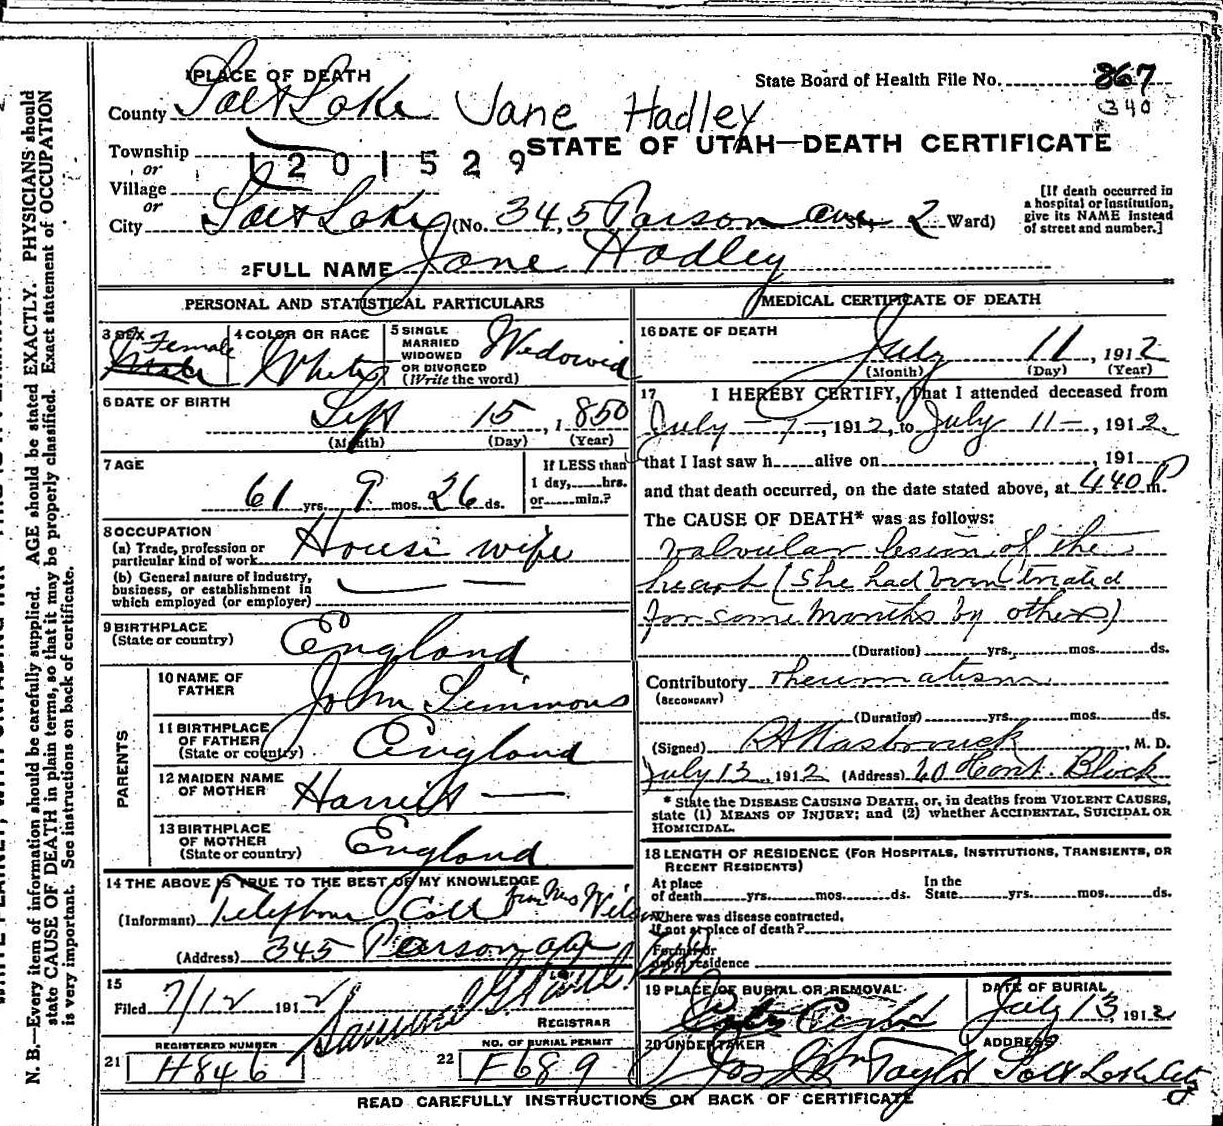 PLACE OF DEATH
State Board of Health File No. 867
County Salt Lake Jane Hadley 340
Township STATE OF UTAH—DEATH CERTIFICATE
or 1201529
Village
or
City Salt Lake (No. 345 Parson ave St; 2 Ward)
[If death occurred in
a hospital or institution,
give its NAME instead
of street and number.]
2 FULL NAME Jane Hadley
PERSONAL AND STATISTICAL PARTICULARS
3 SEX Female Male
4 COLOR OR RACE White
5 SINGLE
MARRIED
WIDOWED
OR DIVORCED
(Write the word) Widowid
6 DATE OF BIRTH
Sept 15, 1850
(Month) (Day) (Year)
7 AGE
61 yrs. 9 mos. 26 ds.
If LESS than
1 day,____hrs.
or____min.?
8 OCCUPATION
(a) Trade, profession or
particular kind of work House wife
(b) General nature of Industry,
business, or establishment in
which employed (or employer)
9 BIRTHPLACE
(State or country) England
PARENTS
10 NAME OF
FATHER John Simmons
11 BIRTHPLACE
OF FATHER
(State or country) England
12 MAIDEN NAME
OF MOTHER Harriet —
13 BIRTHPLACE
OF MOTHER
(State or country) England
14 THE ABOVE IS TRUE TO THE BEST OF MY KNOWLEDGE
(Informant) Telephone Call from Mrs
(Address) 345 Parson ave
15
Filed 7/12 1912
REGISTRAR
REGISTERED NUMBER
21 H846
NO. OF BURIAL PERMIT
22 F689
MEDICAL CERTIFICATE OF DEATH
16 DATE OF DEATH
July 11, 1912
(Month) (Day) (Year)
17 I HEREBY CERTIFY, That I attended deceased from
July -7-, 1912, to July 11-, 1912.
that I last saw h____alive on____, 191
and that death occurred, on the date stated above, at 440 P m.
The CAUSE OF DEATH* was as follows:
Valvular lesion of the
heart (She had been treated
for some months by others)
(Duration)____yrs.____mos.____ds.
Contributory rheumatism
(SECONDARY)
(Duration)____yrs.____mos.____ds.
(Signed) Hasbrouck, M. D.
July 13, 1912 (Address) 60 Block
* State the DISEASE CAUSING DEATH, or, in deaths from VIOLENT CAUSES,
state (1) MEANS OF INJURY; and (2) whether ACCIDENTAL, SUICIDAL OR
HOMICIDAL.
18 LENGTH OF RESIDENCE (FOR HOSPITALS, INSTITUTIONS, TRANSIENTS, OR
RECENT RESIDENTS)
At place In the
of death____yrs.____mos.____ds. State____yrs.____mos.____ds.
Where was disease contracted,
If not at place of death?
Former or
usual residence
19 PLACE OF BURIAL OR REMOVAL
DATE OF BURIAL
July 13, 1912
20 UNDERTAKER ADDRESS
Taylor Salt Lake City
READ CAREFULLY INSTRUCTIONS ON BACK OF CERTIFICATE
N. B.—Every item of information should be carefully supplied. AGE should be stated EXACTLY. PHYSICIANS should
state CAUSE OF DEATH in plain terms, so that it may be properly classified. Exact statement of OCCUPATION
is very important. See instructions on back of certificate.